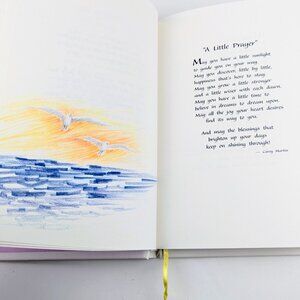 "A Little Prayer"
May you have a little sunlight
to guide you on your way.
May you discover, little by little,
happiness that's here to stay.
May you grow a little stronger
and a little wiser with each dawn.
May you have a little time to
believe in dreams to dream upon.
May all the joy your heart desires
find its way to you.
And may the blessings that
brighten up your days
keep on shining through!